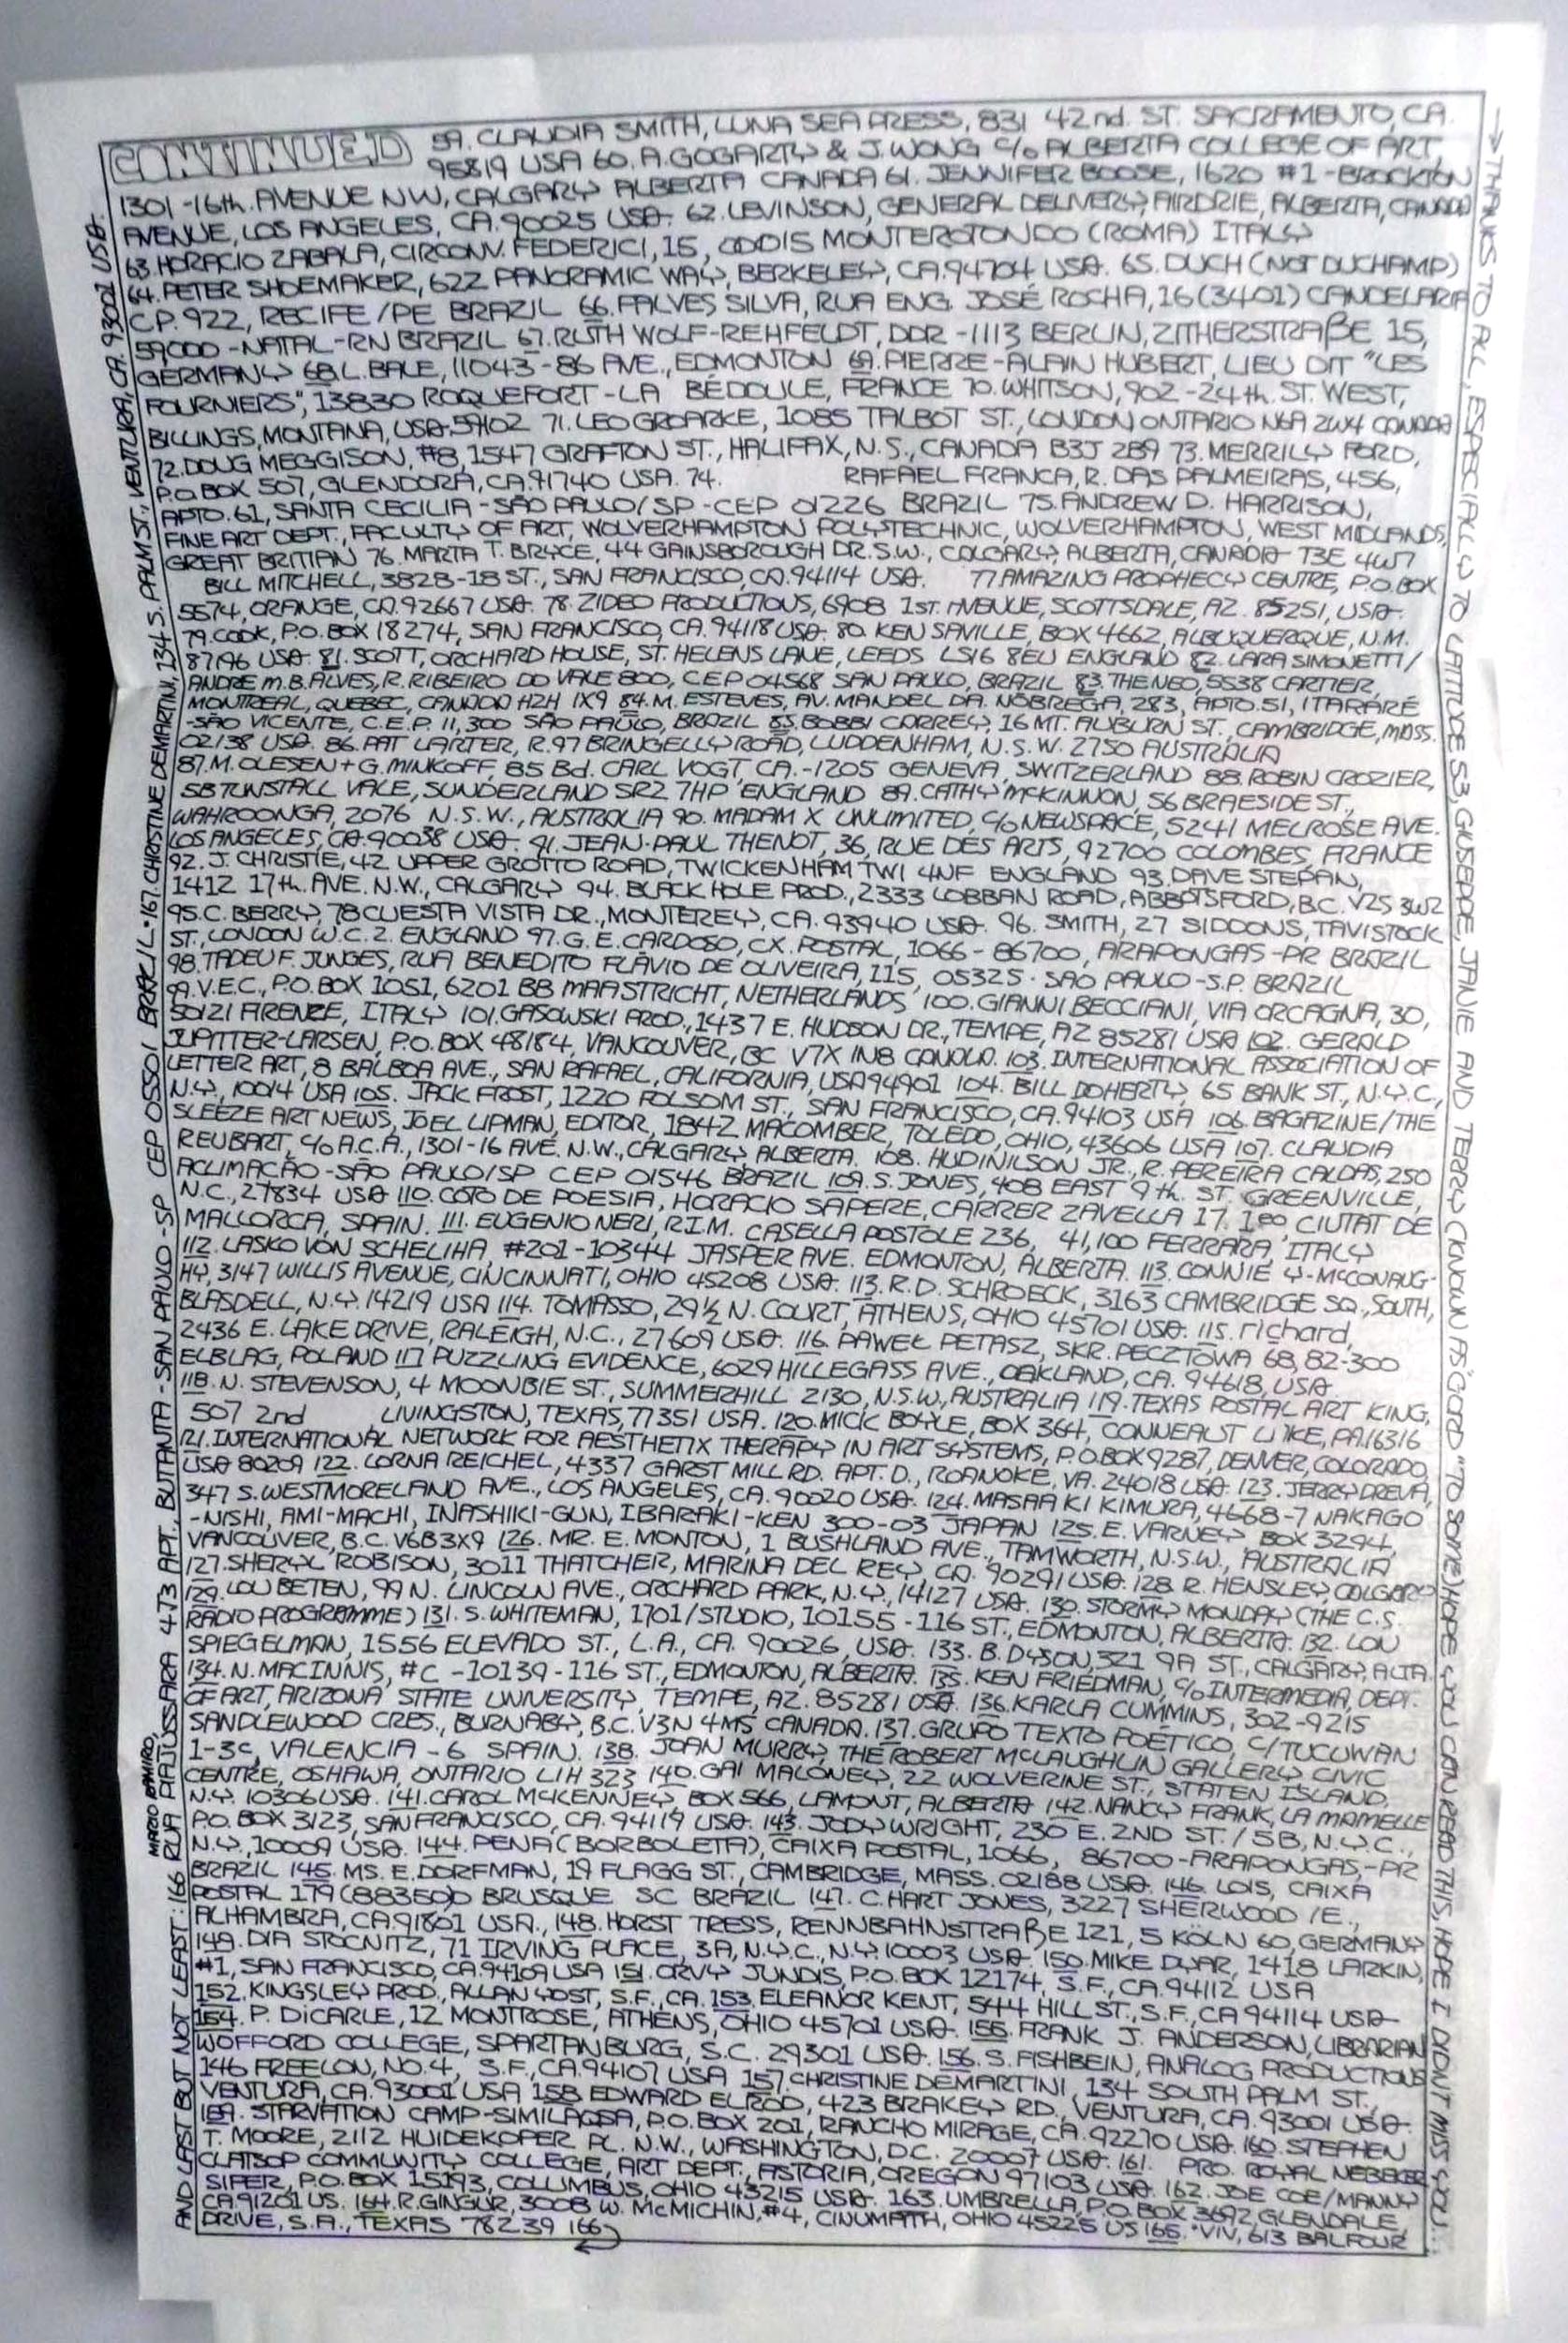 CONTINUED 59. CLAUDIA SMITH, LUNA SEA PRESS, 831 42nd. ST. SACRAMENTO, CA.
95819 USA 60. A. GOGARTY & J. WONG C/O ALBERTA COLLEGE OF ART,
1301-16th. AVENUE NW, CALGARY ALBERTA CANADA 61. JENNIFER BOOSE, 1620 #1-BROCKTON
AVENUE, LOS ANGELES, CA. 90025 USA. 62. LEVINSON, GENERAL DELIVERY, AIRDRIE, ALBERTA, CANADA
63. HORACIO ZABALA, CIRCONV. FEDERICI, 15, 00015 MONTEROTONDO (ROMA) ITALY
64. PETER SHOEMAKER, 622 PANORAMIC WAY, BERKELEY, CA. 94704 USA. 65. DUCH (NOT DUCHAMP)
C.P. 922, RECIFE/PE BRAZIL 66. FALVES SILVA, RUA ENG. JOSÉ ROCHA, 16 (3401) CANDELARIA
59000-NATAL-RN BRAZIL 67. RUTH WOLF-REHFELDT, DDR-1113 BERLIN, ZITHERSTRAßE 15,
GERMANY 68. L. BALE, 11043-86 AVE., EDMONTON 69. PIERRE-ALAIN HUBERT, LIEU DIT "LES
FOURNIERS", 13830 ROQUEFORT-LA BÉDOULE, FRANCE 70. WHITSON, 902-24th. ST. WEST,
BILLINGS, MONTANA, USA. 59102 71. LEO GROARKE, 1085 TALBOT ST., LONDON ONTARIO N6A 2W4 CANADA
72. DOUG MEGGISON, #8, 1547 GRAFTON ST., HALIFAX, N.S., CANADA B3J 2B9 73. MERRILY FORD,
P.O. BOX 507, GLENDORA, CA. 91740 USA. 74. RAFAEL FRANCA, R. DAS PALMEIRAS, 456,
APTO. 61, SANTA CECILIA-SÃO PAULO/SP-CEP 01226 BRAZIL 75. ANDREW D. HARRISON,
FINE ART DEPT., FACULTY OF ART, WOLVERHAMPTON POLYTECHNIC, WOLVERHAMPTON, WEST MIDLANDS,
GREAT BRITIAN 76. MARTA T. BRYCE, 44 GAINSBOROUGH DR. S.W., CALGARY, ALBERTA, CANADA T3E 4W7
BILL MITCHELL, 3828-18 ST., SAN FRANCISCO, CA. 94114 USA. 77 AMAZING PROPHECY CENTRE, P.O. BOX
5574, ORANGE, CA. 92667 USA. 78. ZIDEO PRODUCTIONS, 6908 1st. AVENUE, SCOTTSDALE, AZ. 85251, USA.
79. COOK, P.O. BOX 18274, SAN FRANCISCO, CA. 94118 USA. 80. KEN SAVILLE, BOX 4662, ALBUQUERQUE, N.M.
87196 USA. 81. SCOTT, ORCHARD HOUSE, ST. HELENS LANE, LEEDS LS16 8EU ENGLAND 82. LARA SIMONETTI/
ANDRE M.B. ALVES, R. RIBEIRO DO VALE 800, CEP 04568 SAN PAULO, BRAZIL 83. THENEO, 5538 CARTIER,
MONTREAL, QUEBEC, CANADA H2H 1X9 84. M. ESTEVES, AV. MANOEL DA. NÓBREGA, 283, APTO. 51, ITARARÉ
-SÃO VICENTE, C.E.P. 11,300 SÃO PAULO, BRAZIL 85. BOBBI CORREY, 16 MT. AUBURN ST., CAMBRIDGE, MASS.
02138 USA. 86. PAT LARTER, R.97 BRINGELLY ROAD, LUDDENHAM, N.S.W. 2750 AUSTRALIA
87. M. OLESEN + G. MINKOFF, 85 Bd. CARL VOGT, CA.-1205 GENEVA, SWITZERLAND 88. ROBIN CROZIER,
5B TUNSTALL VALE, SUNDERLAND SR2 7HP ENGLAND 89. CATHY McKINNON, 56 BRAESIDE ST.,
WAHROONGA, 2076 N.S.W., AUSTRALIA 90. MADAM X UNLIMITED, C/O NEWSPACE, 5241 MELROSE AVE.
LOS ANGELES, CA. 90038 USA. 91. JEAN-PAUL THENOT, 36, RUE DES ARTS, 92700 COLOMBES, FRANCE
92. J. CHRISTIE, 42 UPPER GROTTO ROAD, TWICKENHAM TW1 4NF ENGLAND 93. DAVE STEPAN,
1412 17th. AVE. N.W., CALGARY 94. BLACK HOLE PROD., 2333 LOBBAN ROAD, ABBOTSFORD, B.C. V2S 3W2
95. C. BERRY, 78 CUESTA VISTA DR., MONTEREY, CA. 93940 USA. 96. SMITH, 27 SIDDONS, TAVISTOCK
ST., LONDON W.C. 2. ENGLAND 97. G. E. CARDOSO, CX. POSTAL, 1066-86700, ARAPONGAS-PR BRAZIL
98. TADEU F. JUNGES, RUA BENEDITO FLÁVIO DE OLIVEIRA, 115, 05325. SÃO PAULO-S.P. BRAZIL
99. V.E.C., P.O. BOX 1051, 6201 BB MAASTRICHT, NETHERLANDS 100. GIANNI BECCIANI, VIA ORCAGNA, 30,
50121 FIRENZE, ITALY 101. GASOWSKI PROD., 1437 E. HUDSON DR., TEMPE, AZ 85281 USA 102. GERALD
JUPITTER-LARSEN, P.O. BOX 48184, VANCOUVER, BC V7X 1N8 CANADA. 103. INTERNATIONAL ASSOCIATION OF
LETTER ART, 8 BALBOA AVE., SAN RAFAEL, CALIFORNIA, USA 94901 104. BILL DOHERTY, 65 BANK ST., N.Y.C.,
N.Y., 10014 USA 105. JACK FROST, 1220 FOLSOM ST., SAN FRANCISCO, CA. 94103 USA 106. BAGAZINE/THE
SLEEZE ART NEWS, JOEL LIPMAN, EDITOR, 1842 MACOMBER, TOLEDO, OHIO, 43606 USA 107. CLAUDIA
REUBART, C/O A.C.A., 1301-16 AVE. N.W., CALGARY, ALBERTA. 108. HUDINILSON JR., R. PEREIRA CALDAS, 250
ACLIMAÇÃO-SÃO PAULO/SP CEP 01546 BRAZIL 109. S. JONES, 408 EAST 9th. ST. GREENVILLE,
N.C., 27834 USA 110. COTO DE POESIA, HORACIO SAPERE, CARRER ZAVELLA 17. CIUTAT DE
MALLORCA, SPAIN. 111. EUGENIO NERI, R.I.M. CASELLA POSTOLE 236, 41,100 FERRARA, ITALY
112. LASKO VON SCHELIHA, #201-10344 JASPER AVE. EDMONTON, ALBERTA. 113. CONNIE Y-McCONAUG-
HY, 3147 WILLIS AVENUE, CINCINNATI, OHIO 45208 USA. 113. R.D. SCHROECK, 3163 CAMBRIDGE SQ., SOUTH,
BLASDELL, N.Y. 14219 USA 114. TOMASSO, 29½ N. COURT, ATHENS, OHIO 45701 USA. 115. richard,
2436 E. LAKE DRIVE, RALEIGH, N.C., 27609 USA. 116. PAWEŁ PETASZ, SKR. PECZTOWA 68, 82-300
ELBLAG, POLAND 117 PUZZLING EVIDENCE, 6029 HILLEGASS AVE., OAKLAND, CA. 94618, USA.
118. N. STEVENSON, 4 MOONBIE ST., SUMMERHILL 2130, N.S.W., AUSTRALIA 119. TEXAS POSTAL ART KING,
507 2nd LIVINGSTON, TEXAS, 77351 USA. 120. MICK BOYLE, BOX 364, CONNEAUT LAKE, PA. 16316
121. INTERNATIONAL NETWORK FOR AESTHETIX THERAPY IN ART SYSTEMS, P.O. BOX 9287, DENVER, COLORADO,
USA 80209 122. LORNA REICHEL, 4337 GARST MILL RD. APT. D., ROANOKE, VA. 24018 USA. 123. JERRY DREVA,
347 S. WESTMORELAND AVE., LOS ANGELES, CA. 90020 USA. 124. MASAAKI KIMURA, 4668-7 NAKAGO
-NISHI, AMI-MACHI, INASHIKI-GUN, IBARAKI-KEN 300-03 JAPAN 125. E. VARNEY, BOX 3294,
VANCOUVER, B.C. V6B 3X9 126. MR. E. MONTON, 1 BUSHLAND AVE., TAMWORTH, N.S.W., AUSTRALIA
127. SHERYL ROBISON, 3011 THATCHER, MARINA DEL REY, CA. 90291 USA. 128. R. HENSLEY, CALGARY
129. LOU BETEN, 99 N. LINCOLN AVE., ORCHARD PARK, N.Y., 14127 USA. 130. STORMY MONDAY (THE C.S.
RADIO PROGRAMME) 131. S. WHITEMAN, 1701/STUDIO, 10155-116 ST., EDMONTON, ALBERTA. 132. LON
SPIEGELMAN, 1556 ELEVADO ST., L.A., CA. 90026, USA. 133. B. DYSON, 321 9A ST., CALGARY, ALTA.
134. N. MACINNIS, #C-10139-116 ST., EDMONTON, ALBERTA. 135. KEN FRIEDMAN, C/O INTERMEDIA, DEPT.
OF ART, ARIZONA STATE UNIVERSITY, TEMPE, AZ. 85281 USA. 136. KARLA CUMMINS, 302-9215
SANDLEWOOD CRES., BURNABY, B.C. V3N 4M5, CANADA. 137. GRUPO TEXTO POÉTICO, C/TUCUWAN
1-3c, VALENCIA-6 SPAIN. 138. JOAN MURRY, THE ROBERT McLAUGHLIN GALLERY, CIVIC
CENTRE, OSHAWA, ONTARIO L1H 3Z3 140. GAI MALONEY, 22 WOLVERINE ST., STATEN ISLAND,
N.Y. 10306 USA. 141. CAROL McKENNEY, BOX 566, LAMONT, ALBERTA 142. NANCY FRANK, LA MAMELLE
P.O. BOX 3123, SAN FRANCISCO, CA. 94119 USA. 143. JODY WRIGHT, 230 E. 2ND ST./5B, N.Y.C.,
N.Y., 10009 USA. 144. PENA (BORBOLETA), CAIXA POSTAL, 1066, 86700-ARAPONGAS,-PR
BRAZIL 145. MS. E. DORFMAN, 19 FLAGG ST., CAMBRIDGE, MASS. 02188 USA. 146. LOIS, CAIXA
POSTAL 179 (88350) BRUSQUE SC BRAZIL 147. C. HART JONES, 3227 SHERWOOD /E.,
ALHAMBRA, CA. 91801 USA., 148. HORST TRESS, RENNBAHNSTRAßE 121, 5 KÖLN 60, GERMANY
149. DIA STOCNITZ, 71 IRVING PLACE, 3A, N.Y.C., N.Y. 10003 USA. 150. MIKE DYAR, 1418 LARKIN,
#1, SAN FRANCISCO, CA. 94109 USA 151. ORVY JUNDIS, P.O. BOX 12174, S.F., CA. 94112 USA
152. KINGSLEY PROD., ALLAN YOST, S.F., CA. 153. ELEANOR KENT, 544 HILL ST., S.F., CA 94114 USA.
154. P. DiCARLE, 12 MONTROSE, ATHENS, OHIO 45701 USA. 155. FRANK J. ANDERSON, LIBRARIAN
WOFFORD COLLEGE, SPARTANBURG, S.C. 29301 USA. 156. S. FISHBEIN, ANALOG PRODUCTIONS
146 FREELON, NO. 4, S.F., CA. 94107 USA 157. CHRISTINE DEMARTINI, 134 SOUTH PALM ST.,
VENTURA, CA. 93001 USA 158 EDWARD ELROD, 423 BRAKEY RD., VENTURA, CA. 93001 USA.
159. STARVATION CAMP-SIMILAQSA, P.O. BOX 201, RANCHO MIRAGE, CA. 92270 USA. 160. STEPHEN
T. MOORE, 2112 HUIDEKOPER PL. N.W., WASHINGTON, D.C. 20007 USA. 161. PRO. ROYAL NEBEKER
CLATSOP COMMUNITY COLLEGE, ART DEPT., ASTORIA, OREGON 97103 USA. 162. JOE COE/MANNY
SIFER, P.O. BOX 15193, COLUMBUS, OHIO 43215 USA. 163. UMBRELLA, P.O. BOX 3692, GLENDALE,
CA. 91201 US. 164. R. GINGUR, 3008 W. McMICHIN, #4, OHIO 45225 US 165. "VIV, 613 BALFOUR
DRIVE, S.A., TEXAS 78239 166
AND LAST BUT NOT LEAST: 166 MARIO RAMIRO, RUA PIAJUSSARA 473 APT., BUTANTA-SAN PAULO-SP CEP 05501 BRACIL • 167. CHRISTINE DEMARTINI, 134 S. PALM ST., VENTURA, CA. 93001 USA.
→ THANKS TO ALL, ESPECIALLY TO LATITUDE 53, GIUSEPPE, JANE AND TERRY (KNOWN AS "GORD" TO SOME) HOPE YOU CAN READ THIS, HOPE I DIDN'T MISS YOU...